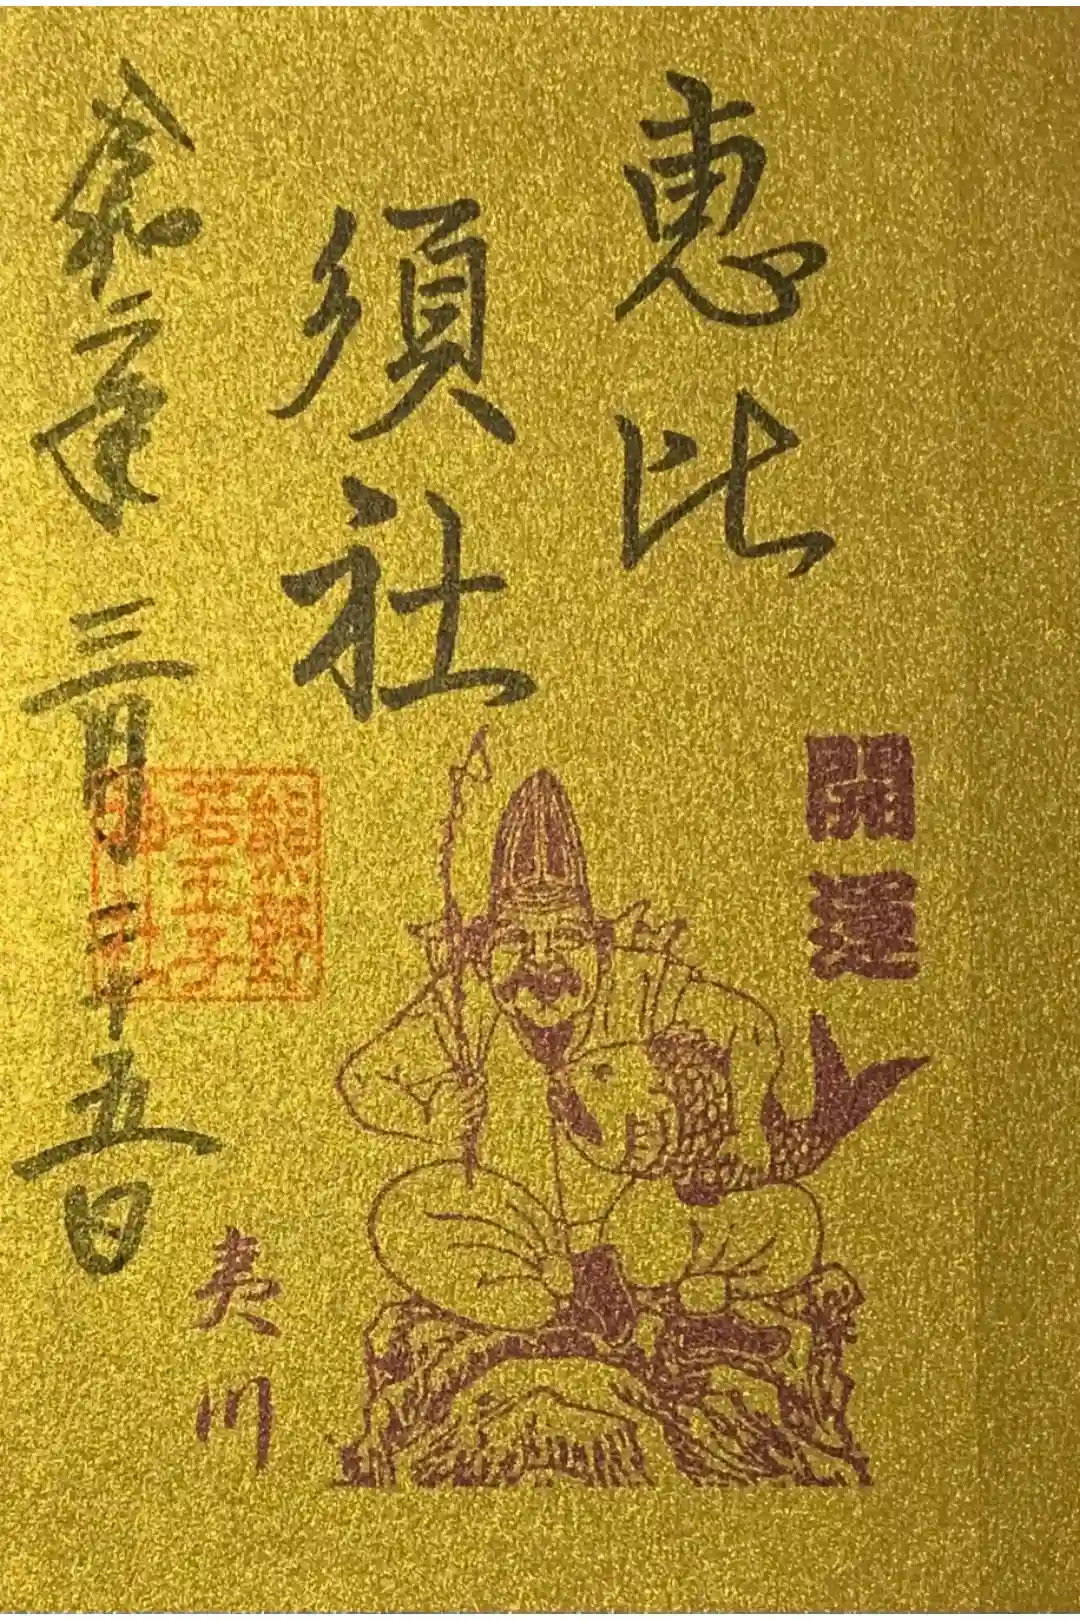 開運
恵比
須社
夷川
熊野
若王子
神社
令和二年三月二十五日